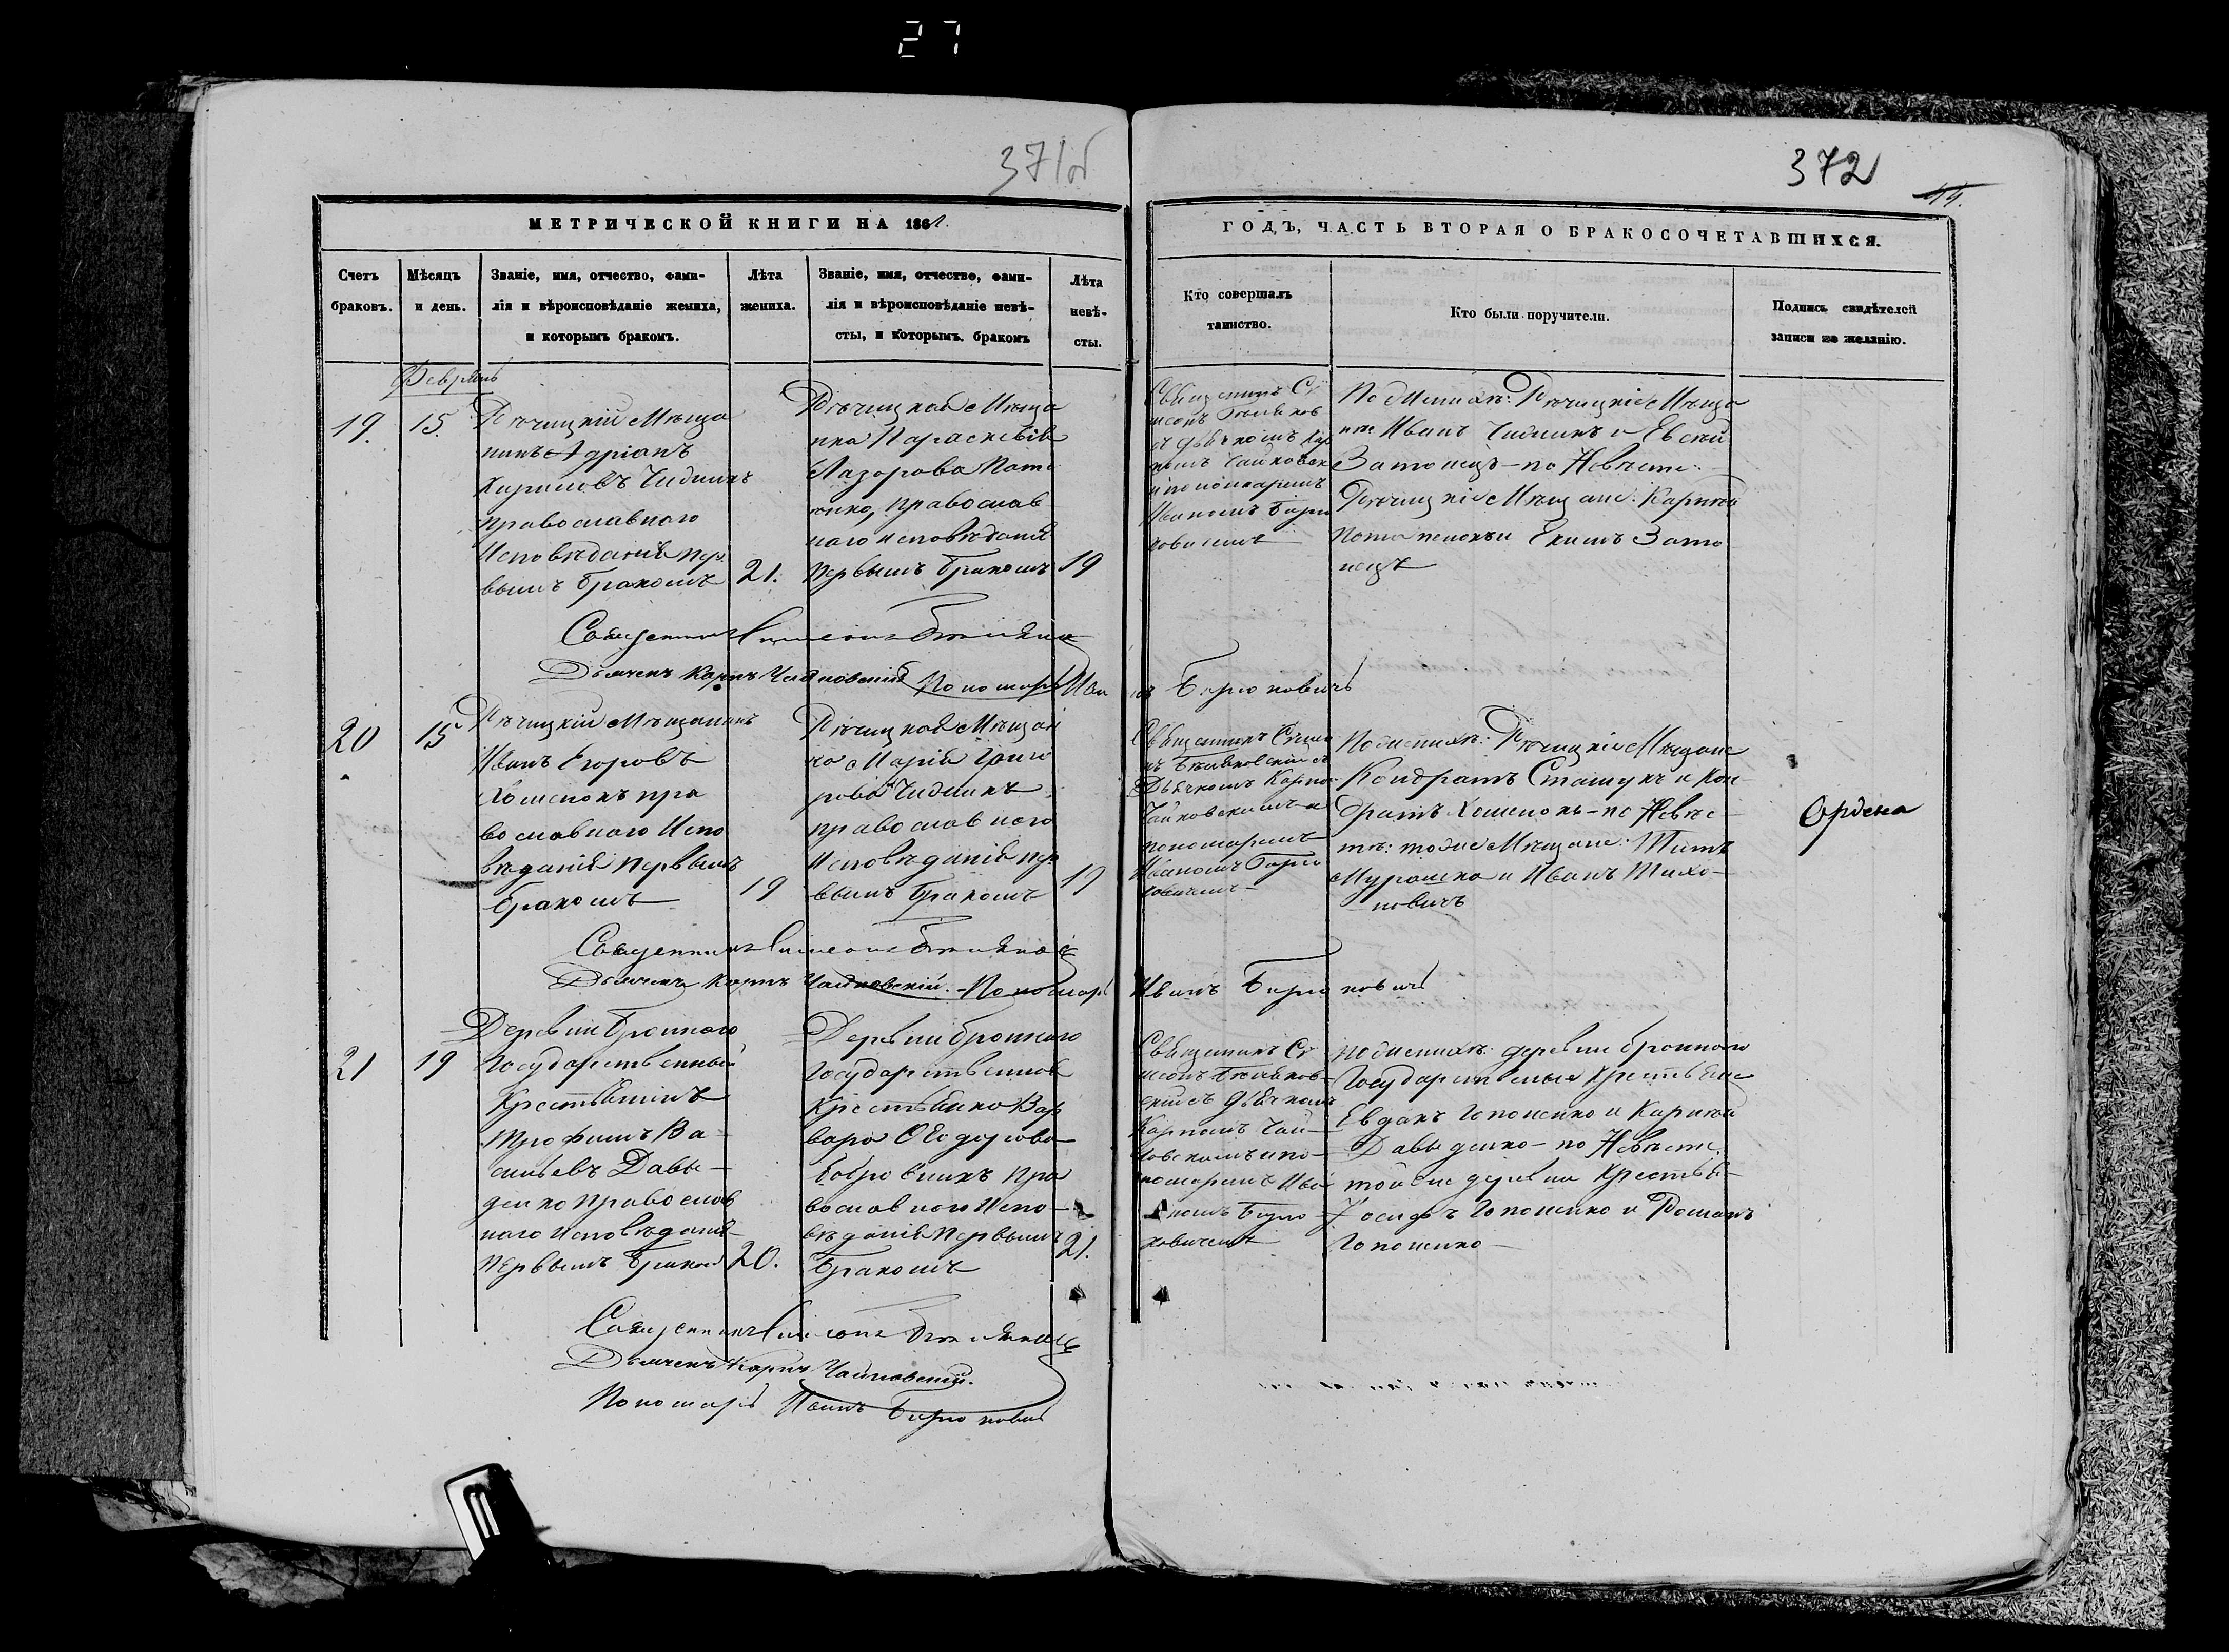 27
371об
372
44.
МЕТРИЧЕСКОЙ КНИГИ НА 1861.
ГОДЪ, ЧАСТЬ ВТОРАЯ О БРАКОСОЧЕТАВШИХСЯ.
Счетъ
браковъ.
Мѣсяцъ
и день.
Званіе, имя, отчество, фами-
лія и вѣроисповѣданіе жениха,
и которымъ бракомъ.
Лѣта
жениха.
Званіе, имя, отчество, фами-
лія и вѣроисповѣданіе невѣ-
сты, и которымъ бракомъ
Лѣта
невѣ-
сты.
Кто совершалъ
таинство.
Кто были поручители.
Подпись свидѣтелей
записи по желанію.
Февраль
19.
15.
Рѣчицкій Мѣща
нинъ Адріанъ
Кириловъ
православнаго
Исповѣданія пер
вымъ бракомъ
21.
Рѣчицкая Мѣща
нка Параскевія
Лазорова Пота
енко, православ
наго исповѣданія
первымъ бракомъ
19
Священникъ Си
меонъ
съ дьячкомъ Кар
помъ Чайковск
и пономаремъ
Иваномъ Бирю
ковичемъ
По женихѣ: Рѣчицкіе Мѣща
не Иванъ и Евсѣй
Затонецъ - по Невѣсте:
Рѣчицкіе Мѣщане: Карпѣй
и Екимъ Зато
нецъ
Священникъ Симеонъ
Дьячекъ Карпъ Чайковскій Пономарь Иванъ Бирюковичъ
20
15
Рѣчицкій Мѣщанинъ
Иванъ Егоровъ
Хоменокъ пра
вославнаго Испо
вѣданія первымъ
бракомъ
19
Рѣчицкая Мѣщан
ка Марія Григо
рова
православнаго
Исповѣданія пер
вымъ бракомъ
19
Священникъ Симео
нъ съ
Дьячкомъ Карпо
Чайковскимъ и
пономаремъ
Иваномъ Бирю
ковичемъ
По женихѣ: Рѣчицкіе Мѣщане
Кондратъ Сташукъ и Кон
дратъ Хоменокъ - по Невѣс
тѣ: тоже Мѣщане: Титъ
Мурашко и Иванъ Тихо-
новичъ
Ордена
Священникъ Симеонъ
Дьячекъ Карпъ Чайковскій. Пономарь Иванъ Бирюковичъ
21
19
Деревни Броннаго
Государственный
Крестьянинъ
Трофимъ Ва-
сильевъ Давы-
денко православ
наго Исповѣданія
Первымъ бракомъ
20.
Деревни Броннаго
Государственная
Крестьянка Вар
вара Ѳеодорова
Бобровникъ пра
вославнаго Испо-
вѣданія Первымъ
бракомъ
21.
Священникъ Си
меонъ
съ дьячкомъ
Карпомъ Чай-
ковскимъ и по-
номаремъ Ива
номъ Бирю
ковичемъ
По женихѣ: деревни Броннаго
Государственные Крестьяне
Евдокъ Гапоненко и Карпѣй
Давыденко - по Невѣсте:
той же деревни Крестья-
Іосифъ Гапоненко и Романъ
Гапоненко -
Священникъ Симеонъ
Дьячекъ Карпъ Чайковскій.
Пономарь Иванъ Бирюковичъ